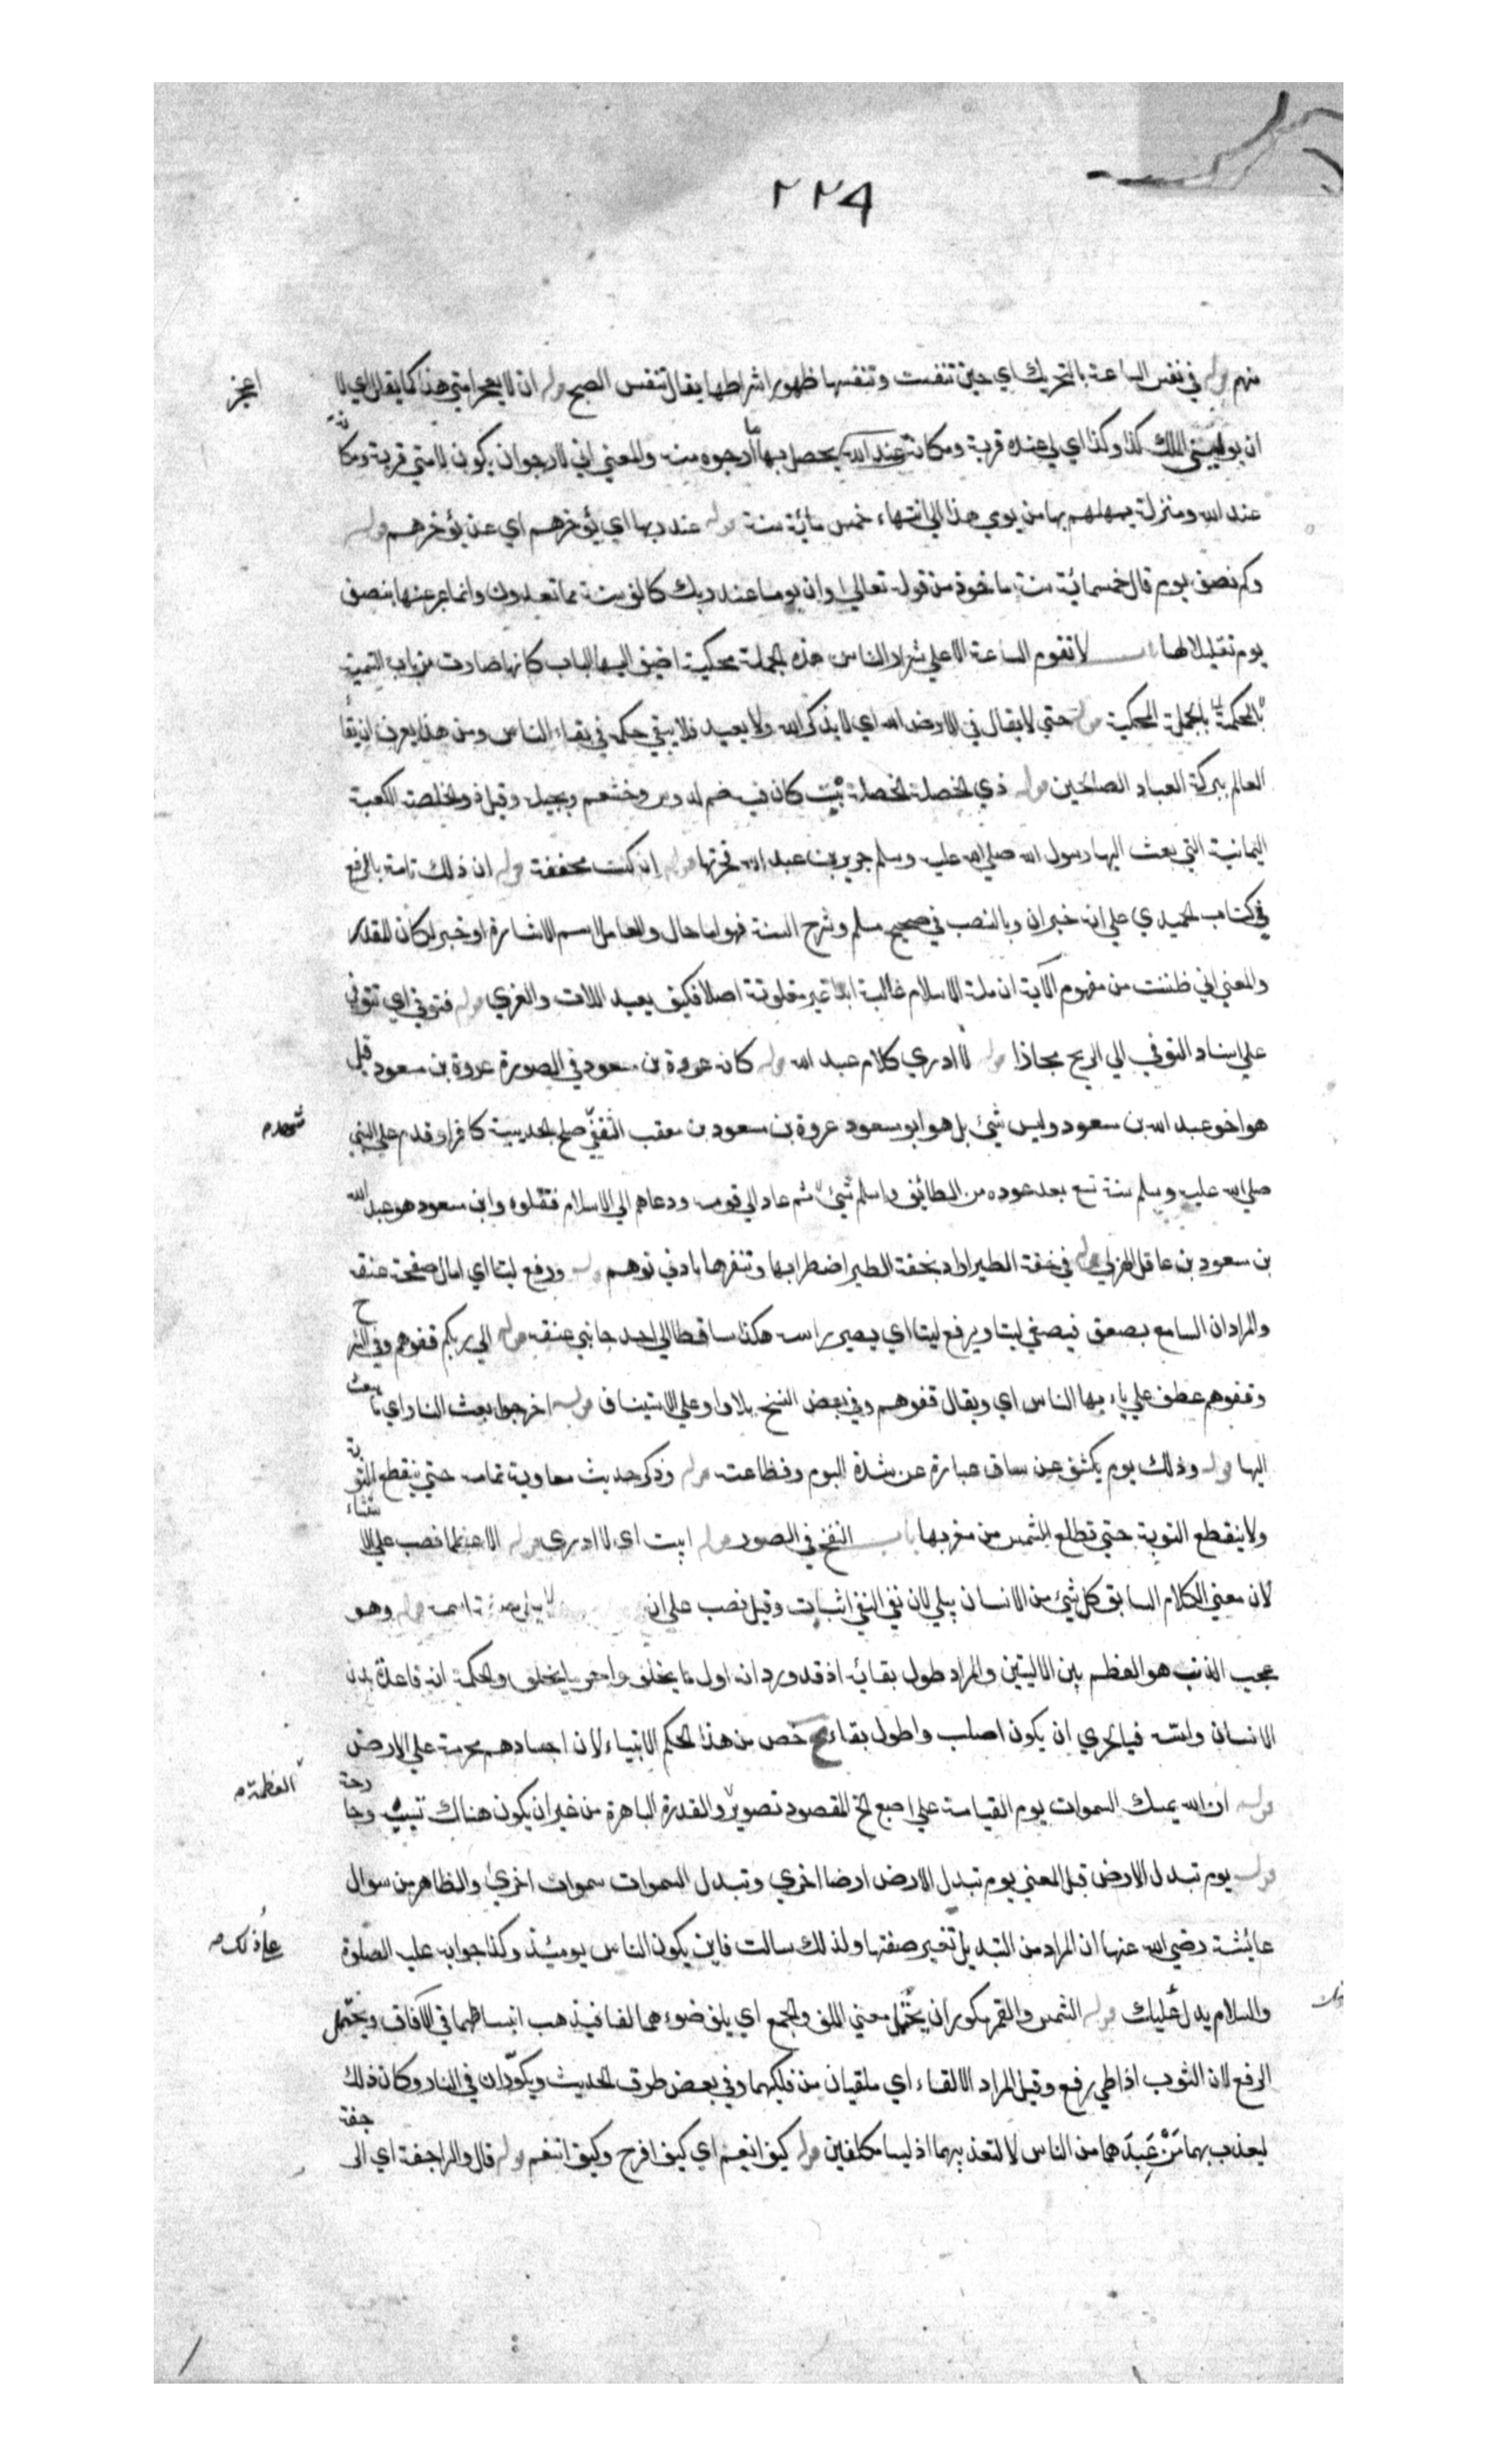 ٢٢٩
منهم قوله في نفس الساعة بالتحريك اي حين تنفست وتنفسها ظهور اشراطها يقال تنفس الصبح قوله ان لا يعجز امتي هذا كما يقال اي لا
اعجز
ان يوليني الملك كذا وكذا اي لي عنده قربة ومكانة عند الله يحصل بها ما ارجوه منه والمعني اني لارجو ان يكون لامتي قربة ومكا
نة
عند الله ومنزلة يمهلهم بها من يومي هذا الي انتهاء خمس مائة سنة قوله عند ربها اي يؤخرهم اي عن يؤخرهم قوله
وكم نصف يوم قال خمسمائة سنة ماخوذ من قوله تعالي وان يوما عند ربك كالف سنة مما تعدون وانما عبر عنها بنصف
يوم تقليلا لها باب لا تقوم الساعة الا علي شرار الناس هذه الجملة محكية اضيف اليها الباب كانها صارت من باب التسمية
بالجملة المحكية قوله حتي لا يقال في الارض الله اي لا يذكر الله ولا يعبد فلا يبقي حكمة في بقاء الناس ومن هذا يعرف ان بقا
العالم ببركة العباد الصالحين قوله ذي الخصلة الخصلة بيت كان فيه صنم لدوس وخثعم وبجيلة وقيل ذو الخلصة الكعبة
اليمانية التي بعث اليها رسول الله صلي الله عليه وسلم جرير بن عبد الله فخربها قوله ان كنت مخففة قوله ان ذلك تامة بالرفع
في كتاب الحميدي علي انه خبر ان وبالنصب في صحيح مسلم وشرح السنة فهو اما حال والعامل اسم الاشارة او خبر لكان المقدر
والمعني اني ظننت من مفهوم الآية ان ملة الاسلام غالبة ابدا غير مغلوبة اصلا فكيف يعبد اللات والعزي قوله فتوفي اي تتوفي
علي اسناد التوفي الي الريح مجازا قوله لا ادري كلام عبد الله قوله كانه عروة بن مسعود في الصورة عروة بن مسعود قيل
هو اخو عبد الله بن مسعود وليس شيئ بل هو ابو مسعود عروة بن مسعود بن معقب الثقفي صلح الحديبية كافرا وقدم علي النبي
شهد
صلي الله عليه وسلم سنة تسع بعد عوده من الطائف واسلم ثم عاد الي قومه ودعاهم الي الاسلام فقتلوه وابن مسعود هو عبد الله
بن مسعود بن عاقل الهذلي قوله في خفة الطير اراد بخفة الطير اضطرابها وتنفرها بادني توهم قوله ورفع ليتا اي امال صفحة عنقه
والمراد ان السامع يصعق فيصغي ليتا ويرفع ليتا اي يصير راسه هكذا ساقطا الي احد جانبي عنقه قوله الي ربكم قفوهم وفي الشر
ح
وقفوهم عطف علي ياء يها الناس اي ويقال قفوهم وفي بعض النسخ بلا واو علي الاستيناف قوله اخرجوا بعث النار اي ما
يبعث
اليها قوله وذلك يوم يكشف عن ساق عبارة عن شدة اليوم وفظاعته قوله وذكر حديث معاوية تمامه حتي ينقطع التو
بة
ولا ينقطع التوبة حتي تطلع الشمس من مغربها باب النفخ في الصور قوله ابيت اي لا ادري قوله الا عظما نصب علي الا
ستثناء
لان معني الكلام السابق كل شيئ من الانسان يبلي لان نفي النفي اثبات وقيل نصب علي ان قوله وهو
عجب الذنب هو العظم بين الاليتين والمراد طول بقائه اذ قد ورد انه اول ما يخلق واخر ما يخلق والحكمة انه قاعدة بدن
الانسان واسه فبالحري ان يكون اصلب واطول بقاء خص من هذا الحكم الانبياء لان اجسادهم محرمة علي الارض
قوله ان الله يمسك السموات يوم القيامة علي اصبع الخ المقصود تصوير والقدرة الباهرة من غير ان يكون هناك تشبيه وجا
رحة
العظمة
قوله يوم تبدل الارض قيل المعني يوم تبدل الارض ارضا اخري وتبدل السموات سموات اخري والظاهر من سوال
عائشة رضي الله عنها ان المراد من التبديل تغير صفتها ولذلك سالت فاين يكون الناس يومئذ وكذا جوابه عليه الصلوة
علي ذلك
والسلام يدل عليك قوله الشمس والقمر مكوران يحتمل معني اللف والجمع اي يلف ضوءهما لفا فيذهب انبساطهما في الآفاق ويحتمل
الرفع لان الثوب اذا طي رفع وقيل المراد الالقاء اي ملقيان من فلكهما وفي بعض طرق الحديث ويكوّران في النار وكان ذلك
ليعذب بهما مَنْ عَبَدَهما من الناس لا لتعذيبهما اذ ليسا مكلفين قوله كيف انعم اي كيف افرح وكيف اتنعم قوله قال والراجفة اي الرا
جفة